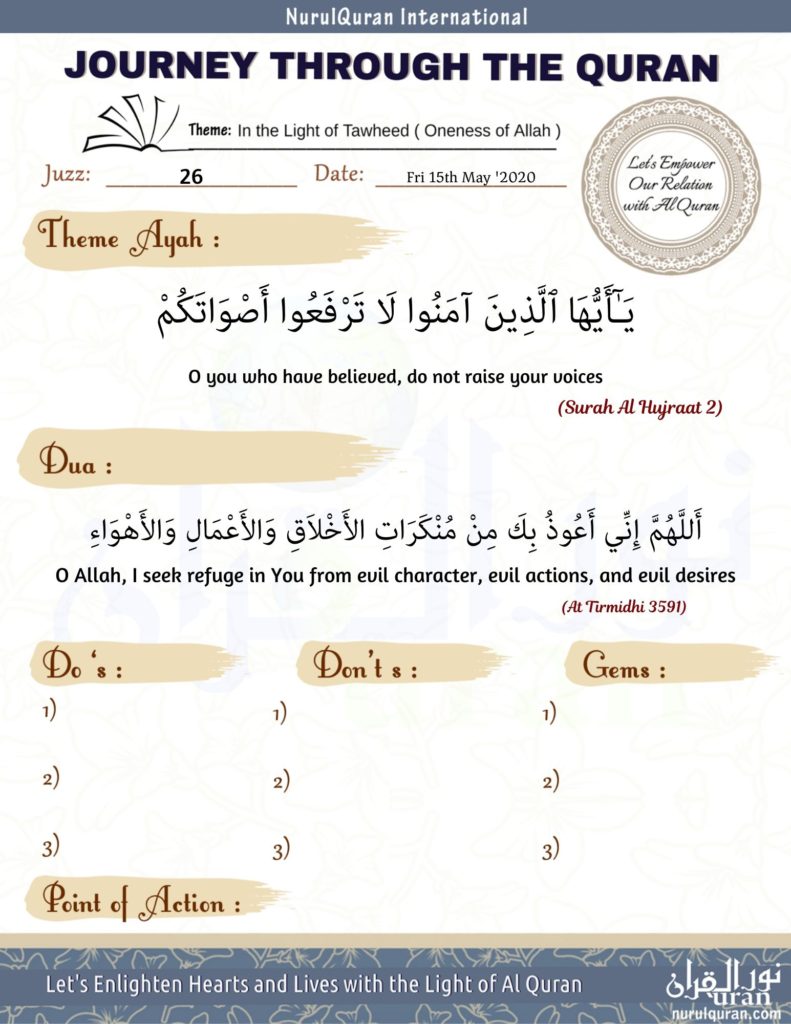 NurulQuran International
JOURNEY THROUGH THE QURAN
Theme: In the Light of Tawheed ( Oneness of Allah )
Let's Empower
Our Relation
with Al Quran
Juzz: 26 Date: Fri 15th May '2020
Theme Ayah :
يَـٰٓأَيُّهَا ٱلَّذِينَ آمَنُوا لَا تَرْفَعُوا أَصْوَاتَكُمْ
O you who have believed, do not raise your voices
(Surah Al Hujraat 2)
Dua :
أَللَّهُمَّ إِنِّي أَعُوذُ بِكَ مِنْ مُنْكَرَاتِ الأَخْلَاقِ وَالأَعْمَالِ وَالأَهْوَاءِ
O Allah, I seek refuge in You from evil character, evil actions, and evil desires
(At Tirmidhi 3591)
Do 's : Don't s : Gems :
1) 1) 1)
2) 2) 2)
3) 3) 3)
Point of Action :
Let's Enlighten Hearts and Lives with the Light of Al Quran
نور القرآن
uran
nurulquran.com